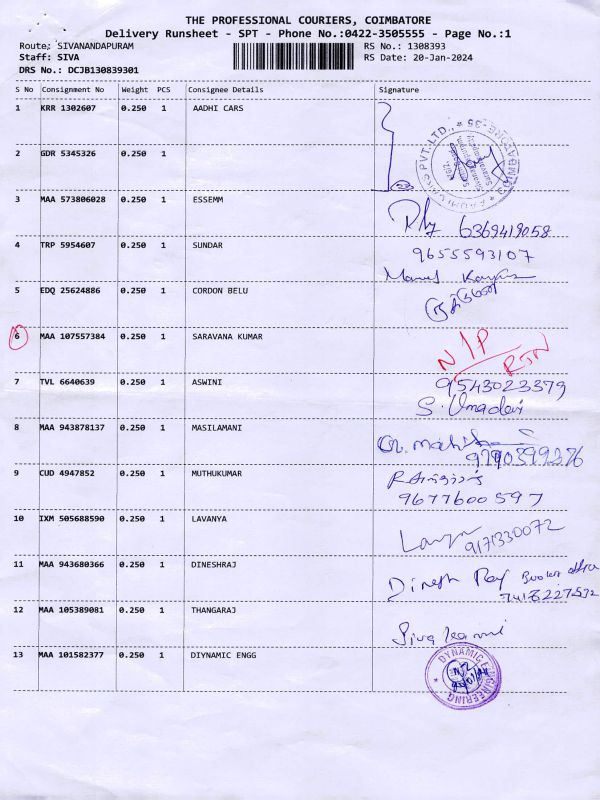 THE PROFESSIONAL COURIERS, COIMBATORE
Delivery Runsheet - SPT - Phone No.:0422-3505555 - Page No.:1
Route: SIVANANDAPURAM RS No.: 1308393
Staff: SIVA RS Date: 20-Jan-2024
DRS No.: DCJB130839301
S No Consignment No Weight PCS Consignee Details Signature
1 KRR 1302607 0.250 1 AADHI CARS
2 GDR 5345326 0.250 1
3 MAA 573806028 0.250 1 ESSEMM
6369419058
4 TRP 5954607 0.250 1 SUNDAR
9655593107
5 EDQ 25624886 0.250 1 CORDON BELU
6 MAA 107557384 0.250 1 SARAVANA KUMAR
N/P
RTN
7 TVL 6640639 0.250 1 ASWINI
9543023379
S. Umadevi
8 MAA 943878137 0.250 1 MASILAMANI
9 CUD 4947852 0.250 1 MUTHUKUMAR
9677600597
10 IXM 505688590 0.250 1 LAVANYA
9171330072
11 MAA 943680366 0.250 1 DINESHRAJ
Dinesh Raj
12 MAA 105389081 0.250 1 THANGARAJ
13 MAA 101582377 0.250 1 DIYNAMIC ENGG
DYNAMIC ENGINEERING